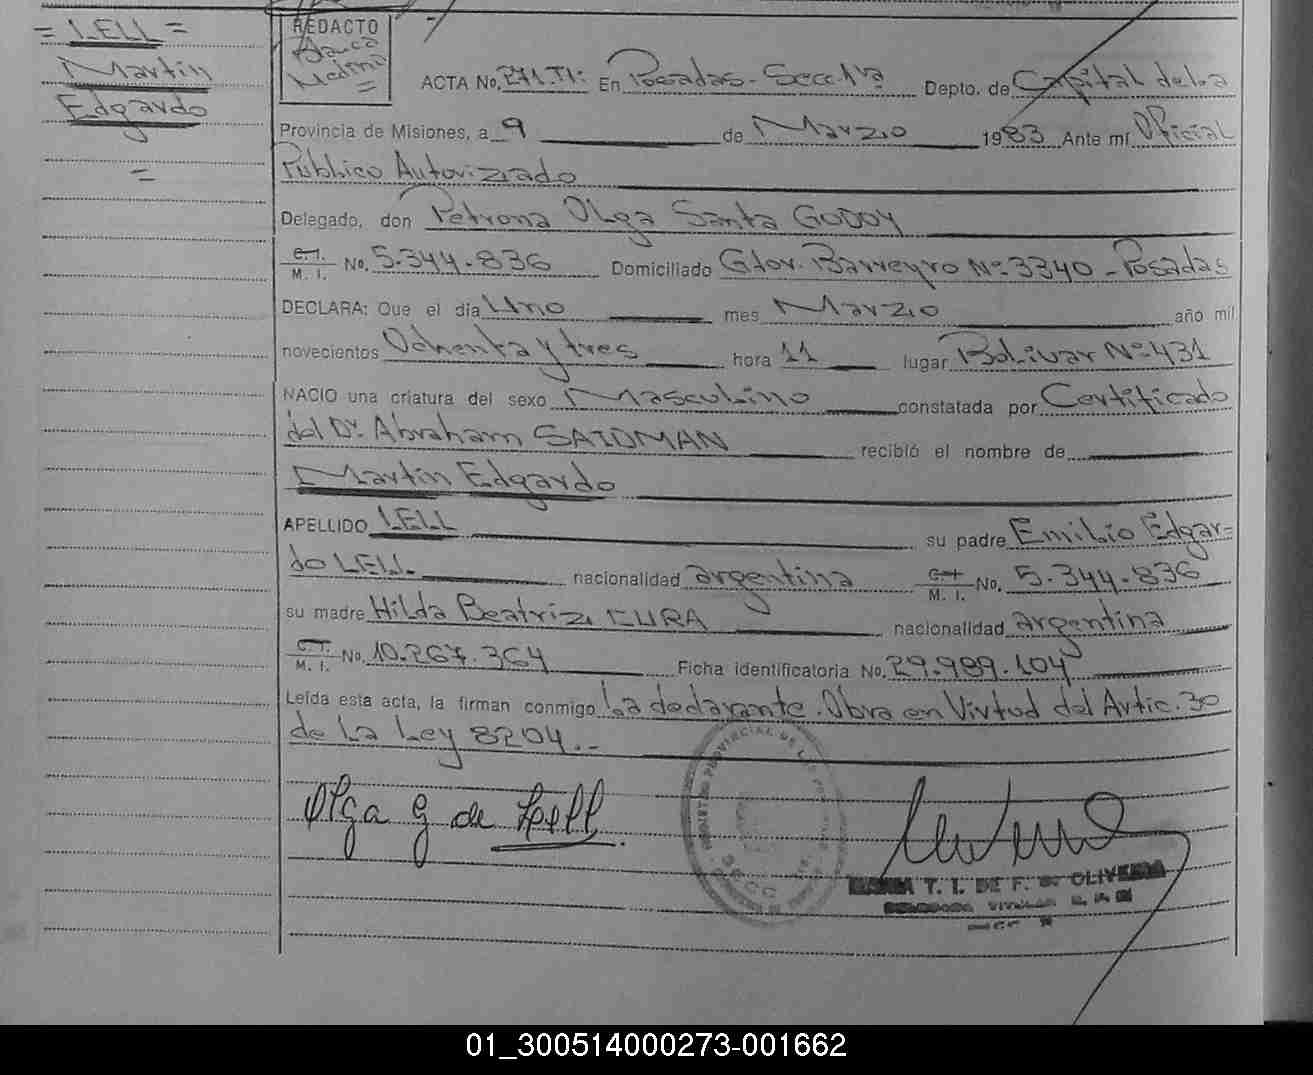 = LELL =
Martín
Edgardo
=
REDACTO
Blanca
Medina
=
ACTA No. 271.T1: En Posadas - Secc 1ra Depto. de Capital de la
Provincia de Misiones, a 9 de Marzo 1983 Ante mí Oficial
Público Autorizado
Delegado, don Petrona Olga Santa GODOY
C.I.
M. I. No. 5.344.836 Domiciliado Gdor. Barreyro Nº 3340 - Posadas
DECLARA: Que el día Uno mes Marzo año mil
novecientos Ochenta y tres hora 11 lugar Bolívar Nº 431
NACIO una criatura del sexo Masculino constatada por Certificado
del Dr. Abraham SAIDMAN recibió el nombre de
Martín Edgardo
APELLIDO LELL su padre Emilio Edgar=
do LELL. nacionalidad argentina C.I.
M. I. No. 5.344.836
su madre Hilda Beatriz CURA nacionalidad argentina
C.I.
M. I. No. 10.267.364 Ficha identificatoria No. 29.989.104
Leída esta acta, la firman conmigo La declarante. Obra en Virtud del Artic. 30
de La Ley 8204.-
Olga G de Lell
REGISTRO PROVINCIAL DE LAS
SECC
T. I. DE F. OLIVEIRA
TITULAR
01_300514000273-001662